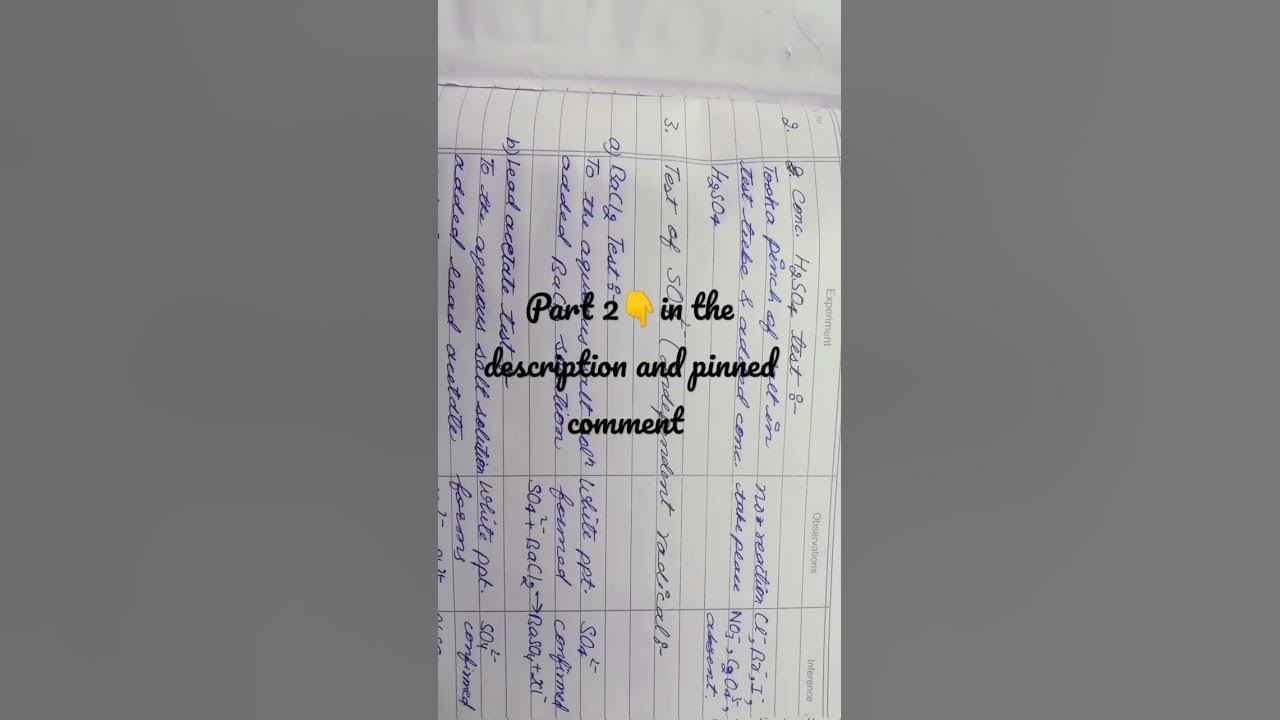 Part 2👇in the
description and pinned
comment
Experiment
Observations
Inference
2. 2. Conc. H2SO4 test :-
Took a pinch of salt in
test tube & added conc.
H2SO4
no reaction
take place
Cl-, Br-, I-,
NO3-, C2O4 2-,
absent.
3. Test of SO4 2- (independent radical :-
a) BaCl2 Test :-
To the aqueous salt soln
added BaCl2 solution
White ppt.
formed
SO4 2-
confirmed
SO4 2- + BaCl2 → BaSO4 + 2Cl-
b) Lead acetate test
To the aqueous salt solution
added lead acetate
White ppt.
forms
SO4 2-
confirmed